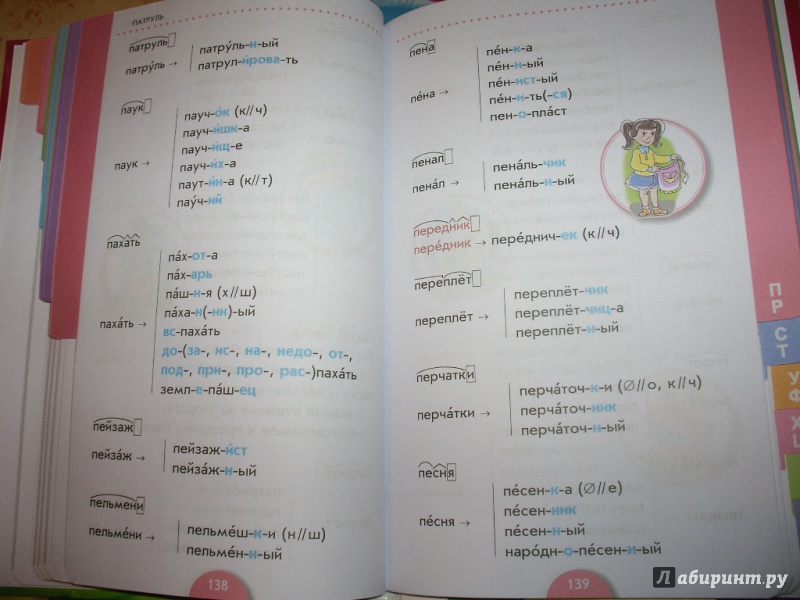 ПАТРУЛЬ
патруль
патру́ль →
патру́ль-н-ый
патрул-и́рова-ть
паук
паук →
пауч-о́к (к//ч)
пауч-и́шк-а
пауч-и́щ-е
пауч-и́х-а
паут-и́н-а (к//т)
па́уч-ий
пахать
паха́ть →
па́х-от-а
па́х-арь
па́ш-н-я (х//ш)
па́ха-н(-нн)-ый
вс-паха́ть
до-(за-, ис-, на-, недо-, от-,
под-, при-, про-, рас-)паха́ть
земл-е-па́ш-ец
пейзаж
пейза́ж →
пейзаж-и́ст
пейза́ж-н-ый
пельмени
пельме́ни →
пельме́ш-к-и (н//ш)
пельме́н-н-ый
138
пена
пе́на →
пе́н-к-а
пе́н-н-ый
пе́н-ист-ый
пе́н-и-ть(-ся)
пен-о-пла́ст
пенал
пена́л →
пена́ль-чик
пена́ль-н-ый
передник
пере́дник → пере́днич-ек (к//ч)
переплёт
переплёт →
переплёт-чик
переплёт-чиц-а
переплёт-н-ый
перчатки
перча́тки →
перча́точ-к-и (∅//о, к//ч)
перча́точ-ник
перча́точ-н-ый
песня
пе́сня →
пе́сен-к-а (∅//е)
пе́сен-ник
пе́сен-н-ый
наро́дн-о-пе́сен-н-ый
139
П
Р
С
Т
У
Ф
Х
Ц
Лабиринт.ру